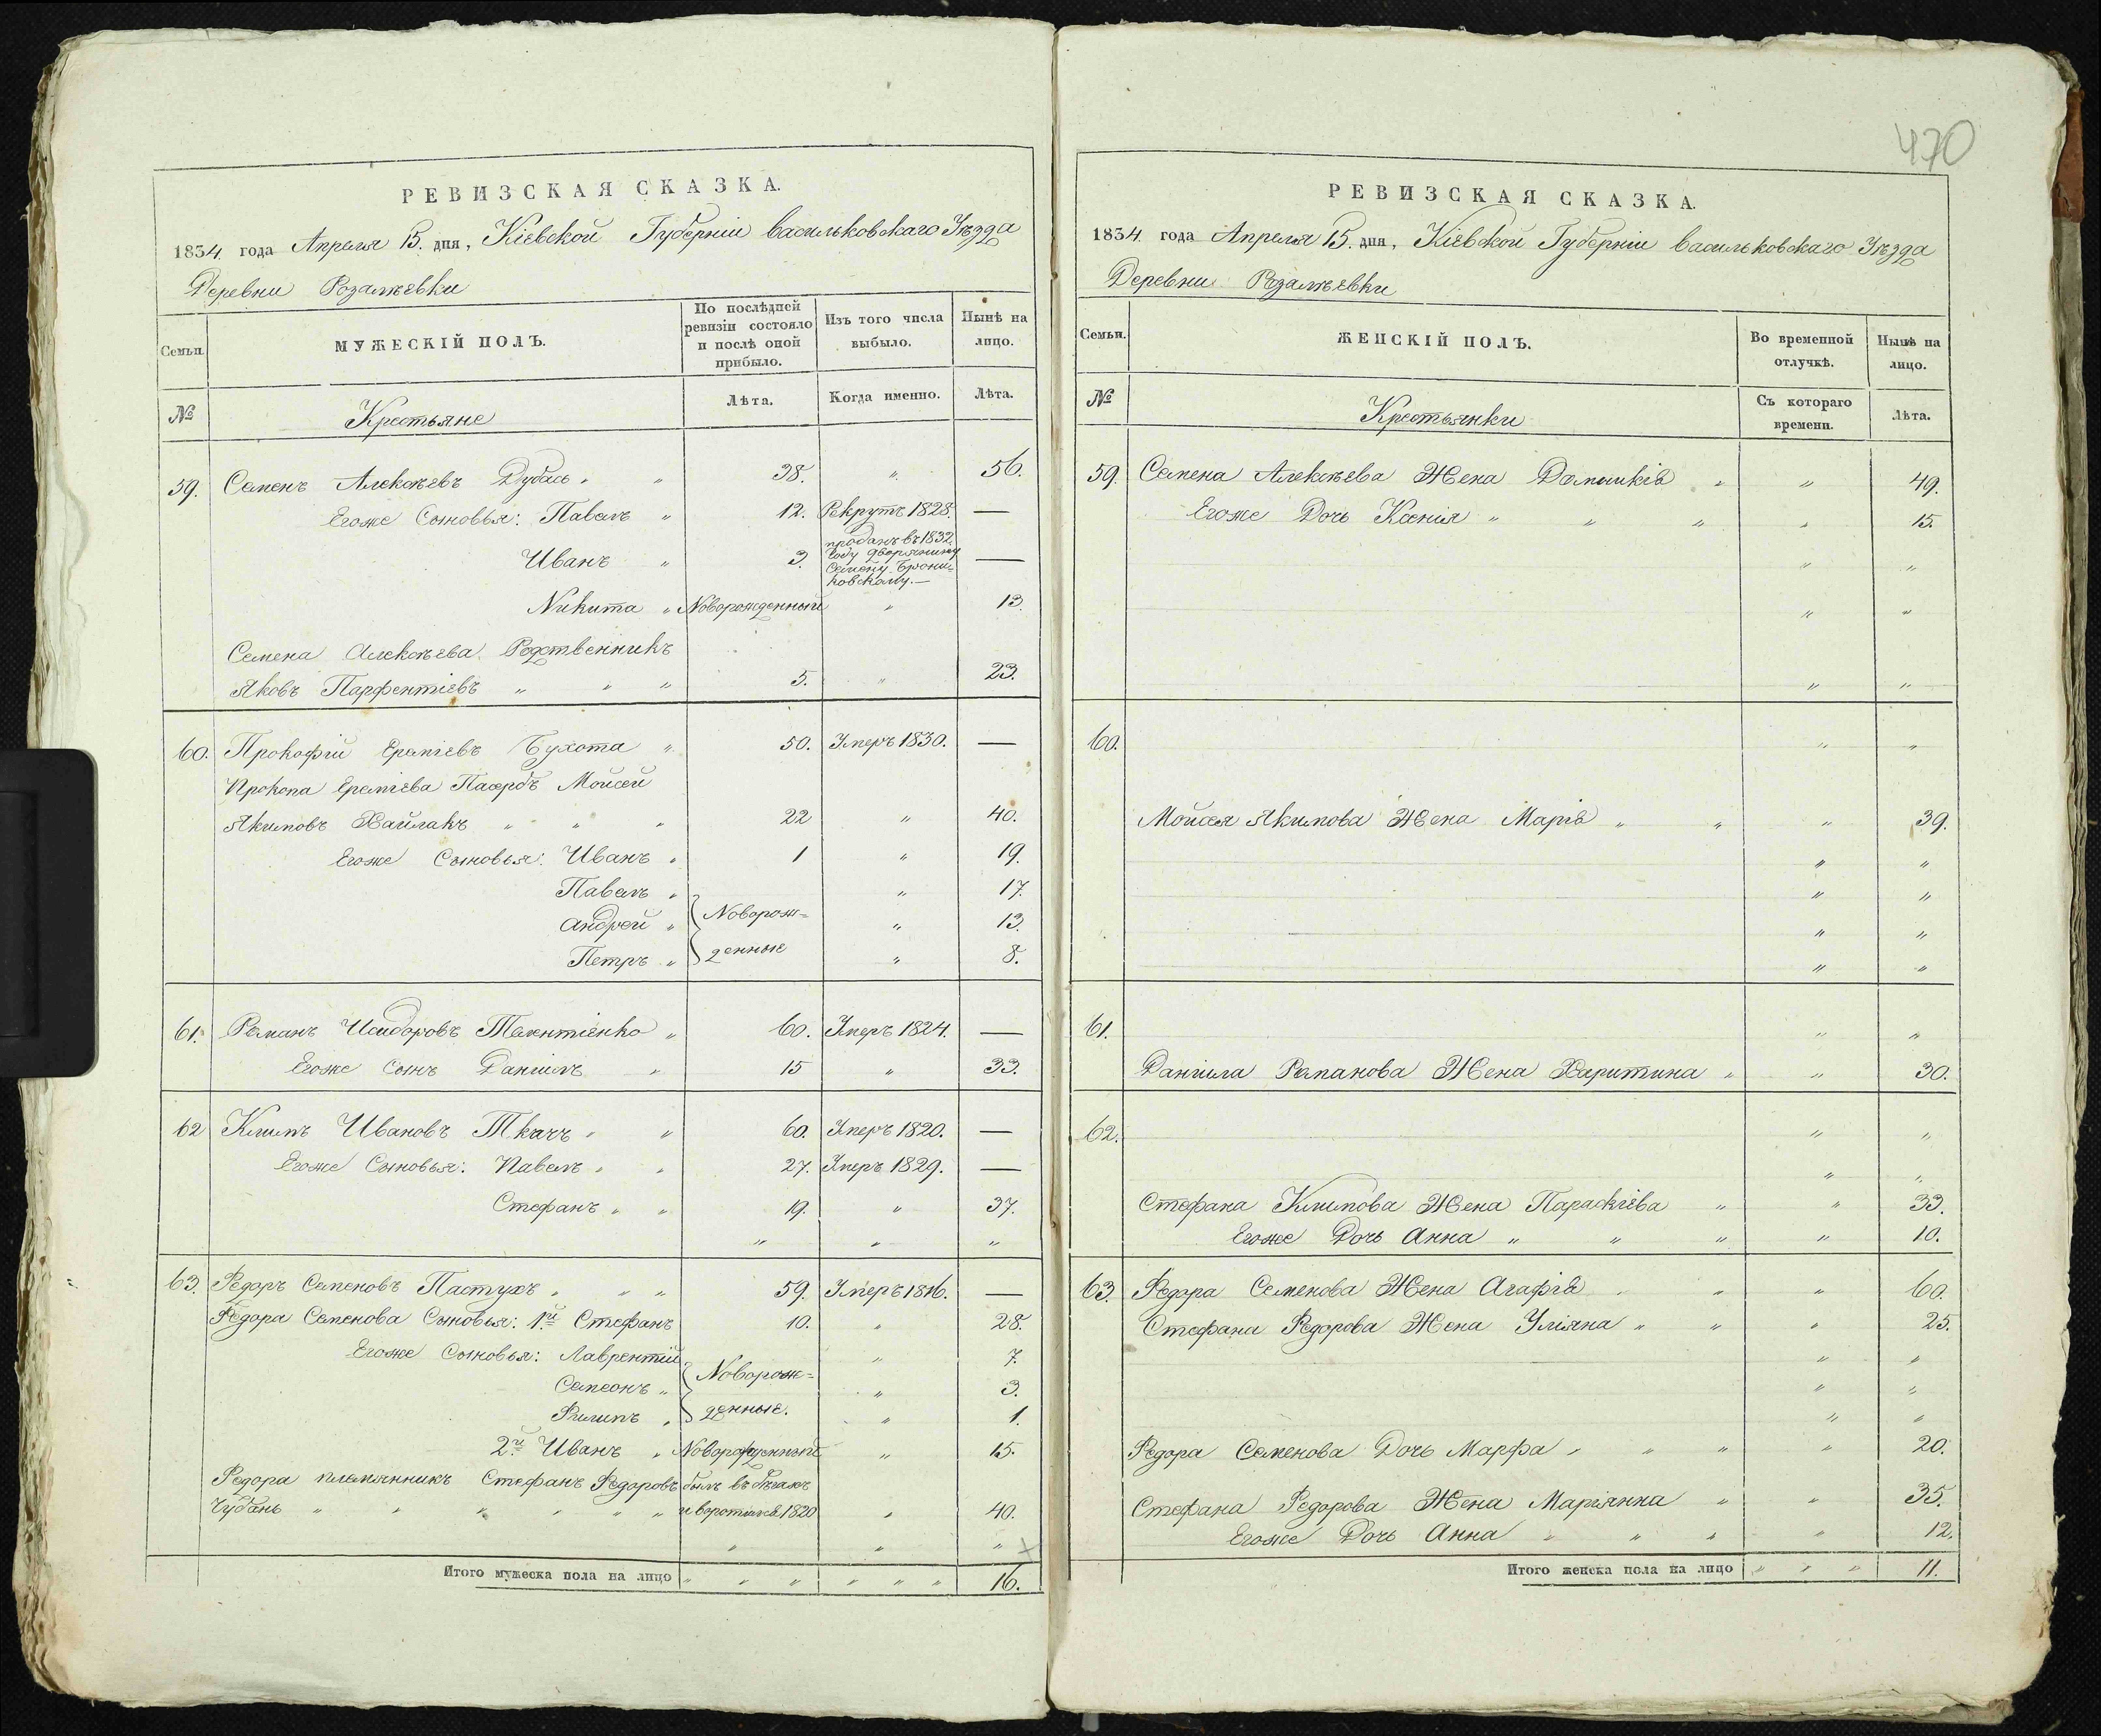 РЕВИЗСКАЯ СКАЗКА.
1834 года Апреля 15. дня, Кіевской Губерніи Васильковскаго Уѣзда
Деревни Розалѣевки
Семьи.
МУЖЕСКІЙ ПОЛЪ.
По послѣдней ревизіи состояло и послѣ оной прибыло.
Изъ того числа выбыло.
Нынѣ на лицо.
№
Крестьяне
Лѣта.
Когда именно.
Лѣта.
59. Семенъ Алексѣевъ Дубась „ „ 38. „ 56.
Егоже Сыновья: Павелъ „ 12. Рекрутъ 1828. —
проданъ въ 1832.
Иванъ „ 3. году дворянину —
Семену Брони=
ковскому. —
Никита „ Новорожденный „ 13.
Семена Алексѣева Родственникъ
Яковъ Парфентіевъ „ „ „ 5. „ 23.
60. Прокофій Ереміевъ Бухота „ 50. Умеръ 1830. —
Прокопа Ереміева Пасербъ Мойсей
Якимовъ Хайлакъ „ „ „ 22 „ 40.
Егоже Сыновья: Иванъ „ 1 „ 19.
Павелъ „ „ 17.
Андрей „ Новорож= „ 13.
Петръ „ денные „ 8.
61. Романъ Исидоровъ Текентіенко „ 60. Умеръ 1824. —
Егоже Сынъ Даніилъ „ 15 „ 33.
62 Климъ Ивановъ Ткачъ „ „ 60. Умеръ 1820. —
Егоже Сыновья: Павелъ „ „ 27. Умеръ 1829. —
Стефанъ „ „ 19. „ 37.
„ „ „
63. Ѳедоръ Семеновъ Пастухъ „ „ „ 59. Умеръ 1816. —
Ѳедора Семенова Сыновья: 1й Стефанъ 10. „ 28.
Егоже Сыновья: Лаврентій „ 7.
Семеонъ „ Новорож= „ 3.
Филипъ „ денные. „ 1.
2й Иванъ „ Новорожденный „ 15.
Ѳедора племянникъ Стефанъ Ѳедоровъ былъ въ бѣгахъ
Чубань „ „ „ „ „ „ и воротился 1820 „ 40.
„ „ „
Итого мужеска пола на лицо „ „ „ „ „ „ 16.
470
РЕВИЗСКАЯ СКАЗКА.
1834 года Апреля 15. дня, Кіевской Губерніи Васильковскаго Уѣзда
Деревни Розалѣевки
Семьи.
ЖЕНСКІЙ ПОЛЪ.
Во временной отлучкѣ.
Нынѣ на лицо.
№
Крестьянки
Съ котораго времени.
Лѣта.
59. Семена Алексѣева Жена Домникія „ „ 49.
Егоже Дочь Ксенія „ „ „ „ 15.
„ „
„ „
„ „
60. „ „
Мойсея Якимова Жена Марія „ „ „ 39.
„ „
„ „
„ „
„ „
61. „ „
Даніила Романова Жена Харитина „ „ 30.
62. „ „
„ „
Стефана Климова Жена Параскіева „ „ 33.
Егоже Дочь Анна „ „ „ „ 10.
63. Ѳедора Семенова Жена Агафія „ „ „ 60.
Стефана Ѳедорова Жена Уліяна „ „ „ 25.
„ „
„ „
„ „
Ѳедора Семенова Дочь Марфа „ „ „ „ 20.
Стефана Ѳедорова Жена Маріянна „ „ 35.
Егоже Дочь Анна „ „ „ „ 12.
Итого женска пола на лицо „ „ „ 11.